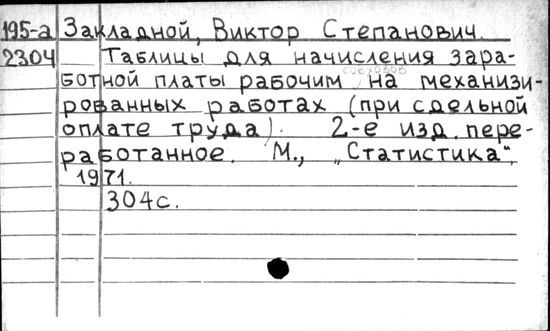 195-а Закладной, Виктор Степанович.
2304 Таблицы для начисления зара-
ботной платы рабочим на механизи-
рованных работах (при сдельной
оплате труда). 2-е изд. пере-
работанное. М., „Статистика",
1971.
304с.